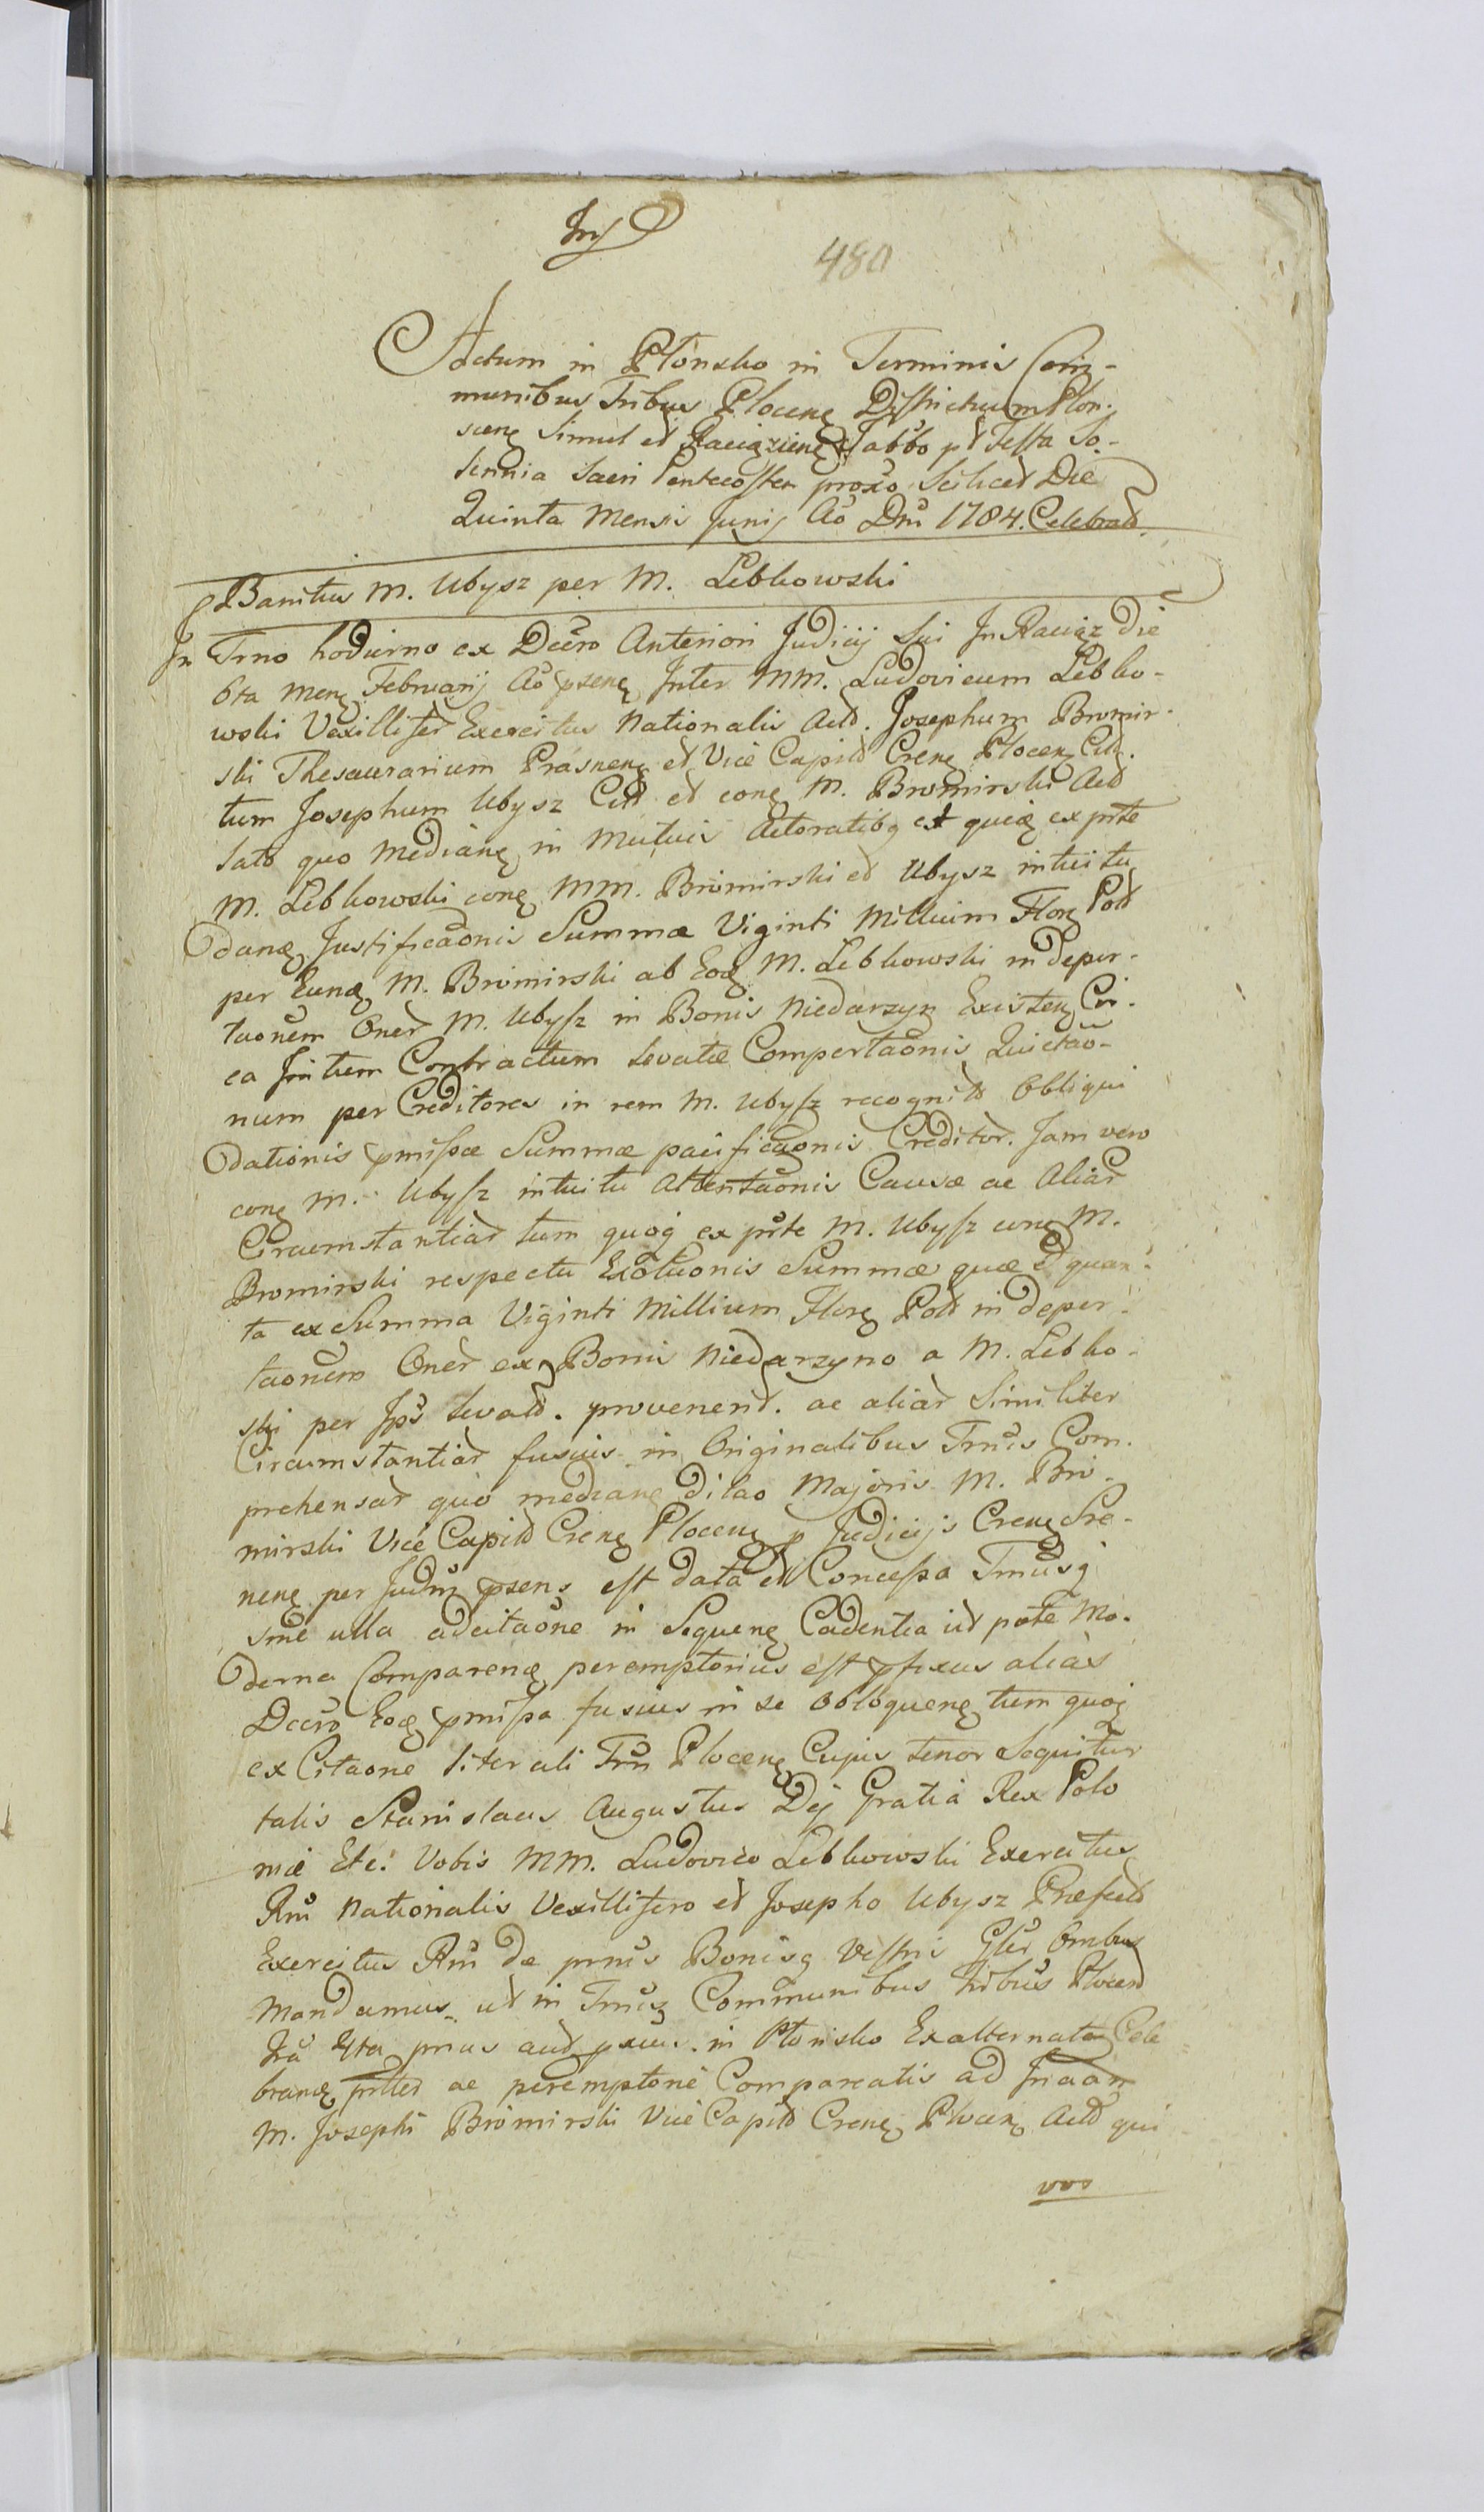 480
Actum in Płónsko in Terminis Com-
munibus Tribus Plocenę Districtuum Plon-
scenę Simul et Raciązienę Sabbo pt Festa So-
lennia Sacri Pentecostes proxo Scilicet Die
Quinta Mensis Junij Ao Dni 1784. Celebrat
Banitus M. Ubysz per M. Lebkowski
In Trno hodierno ex Dcro Anteriori Judicij Sui In Raciąz Die
6ta Menę Februarij Ao psenę Inter MM. Ludovicum Lebko-
wski Vexillifer Exercitus Nationalis Act. Josephum Bromir-
ski Thesaurarium Prásnenę et Vice Capit Crenę Plocenę Citt.
tum Josephum Ubysz Citt et conę M. Bromirski Act
lato quo Medianę in Mutuis Actoratibq et quidę ex prte
M. Lebkowski conę MM. Bromirski et Ubysz intuitu
danæ Justificaonis Summæ Viginti Millium Florę Polt
per Eundę M. Bromirski ab Eodę M. Lebkowski in depor-
taonem Oner M. Ubysz in Bonis Niedarzyn Existenę Cir-
ca Initum Contractum levatæ Comportaonis Quictao-
num per Creditores in rem M. Ubysz recognit Obliqui
dationis pmissæ Summæ pacificaonis Creditor. Jam vero
conę M. Ubysz intuitu Attentaonis Causæ ac Aliar
Circumstantiar tum quoq ex prte M. Ubysz conę M.
Bromirski respectu Exolutionis Summæ quæ et quan-
ta ex Summa Viginti Millium Florę Polt in depor-
taonem Oner ex Bonis Niedarzyno a M. Lebko-
ski per Ips levat. provenient. ac aliar Similiter
Circumstantiar fusius in Originalibus Trnis Com-
prehensar quo medianę dilao Majoris M. Bro-
mirski Vice Capit Crenę Plocenę p Judicijs Crenę Sre-
nenę per Judm psens est data et Concessa Trnusq
sine ulla adcitaone in Sequenę Cadentia ut pote Mo-
derna Comparenæ peremptorius est pfixus aliàs
Dccro Eodę pmissa fusius in se obloquenę tum quoq
ex Citaone literali Trn Plocenę Cujus tenor Sequitur
talis Stanislaus Augustus Dej Gratia Rex Polo
niæ Etc. Vobis MM. Ludovico Lebkowski Exercitus
Rni Nationalis Vexillifero et Josepho Ubysz Præfect
Exercitus Rni de prnis Bonisq Vestris Gler Ombus
Mandamus, ut in Trnis Communibus tribus Plocen
prius aut pxius in Płonsko Exalternata Cele
brandę prlter ac peremptorie Compareatis ad Inaan
M. Josephi Bromirski Vice Capit Crenę Plocenę Act qui
vos